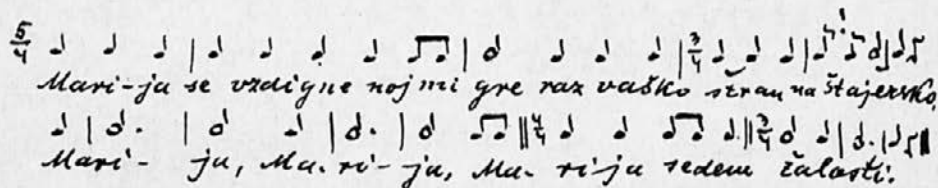 5/4
Mari-ja se vzdigne noj mi gre raz vaško stran na Štajersko,
4/4 3/4
Mari- ju, Ma-ri-ju, Ma-ri-ja sedem žalosti.